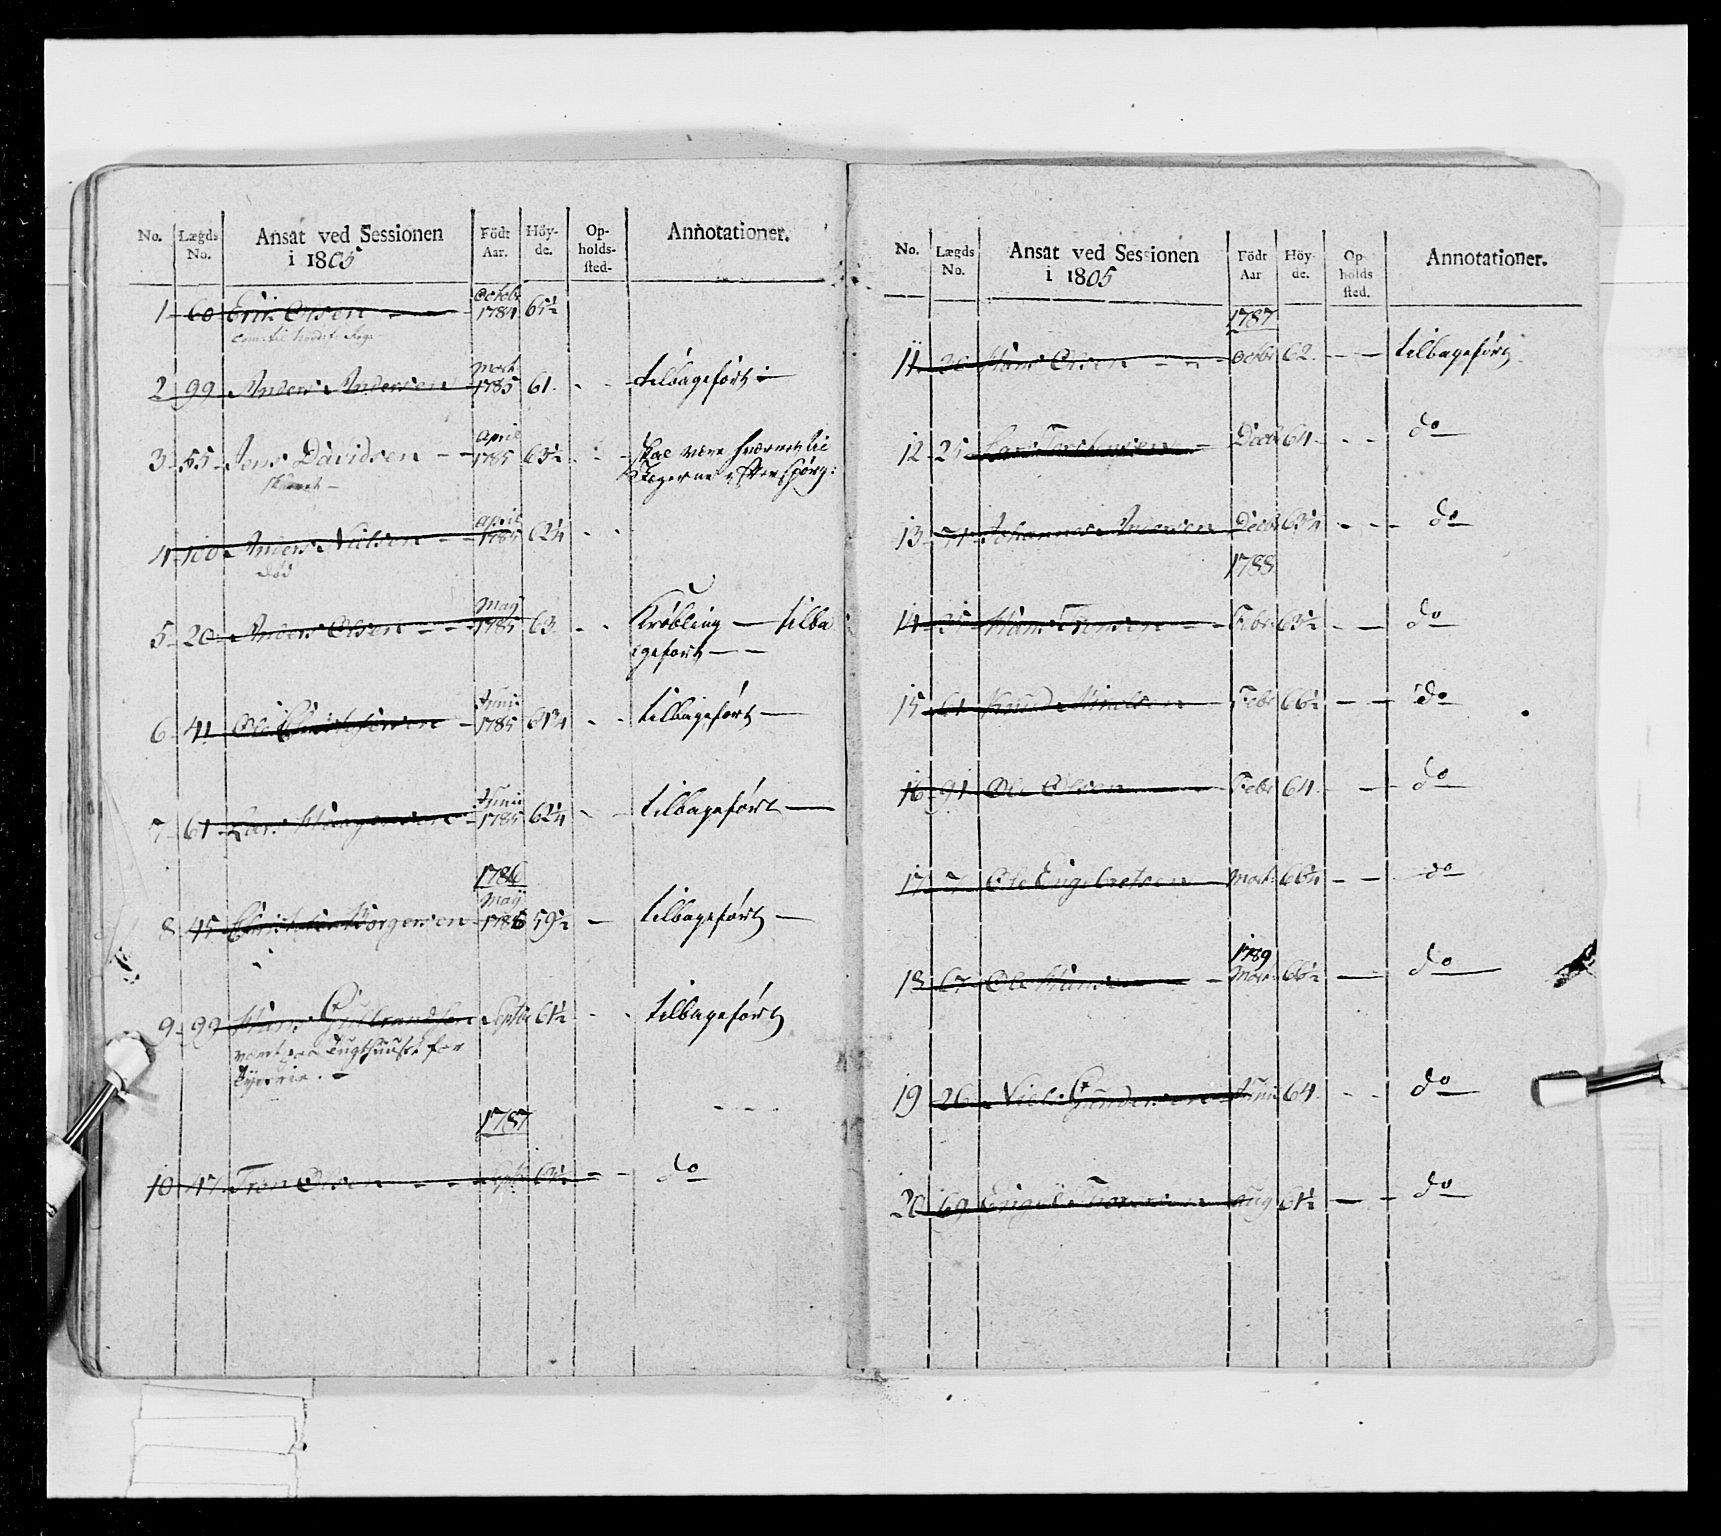 No. Lægds No. Ansat ved Sessionen i 1805 Födt Aar. Höy-de. Op-holds-sted- Annotationer.
1 60 Erik Olsen Octobr 1784 65½
2 99 Anders Andersen Mart 1785 61. tilbageført
3 55 Jens Davidsen April 1785 63½ skal være hværvet til
Jægerne efterspørg:
4 100 Anders Nielsen April 1785 62¼
död
5 20 Anders Olsen May 1785 63 Krøbling — tilba
geført — —
6 41 Ole Christensen Junii 1785 61¾ tilbageført —
7 61 Lars Junii 1785 62¼ tilbageført —
1786
8 45 May 1786 59½ tilbageført —
9 99 Hans Gulbrandsen Septbr 61½ tilbageført
været paa Tugthuuset for
Tyverie. —
1787
10 47 Tron Olsen Septbr 63½ do
No. Lægds No. Ansat ved Sessionen i 1805 Födt Aar Höy-de. Op-holds sted. Annotationer.
1787
11 36 Hans Olsen Octobr 62. tilbageført
12 25 Lars Decbr 64. do
13 71 Johannes Andersen Decbr 63¼ do
1788
14 35 Hans Febr 63½ do
15 61 Knud Febr 66½ do
16 91 Ole Olsen Febr 64. do
17 7 Ole Engebretsen Mart 66¼ do
1789
18 67 Ole Hansen Mart 66½ do
19 26 Niels Gundersen Junii 64. do
20 69 Aug 61½ do